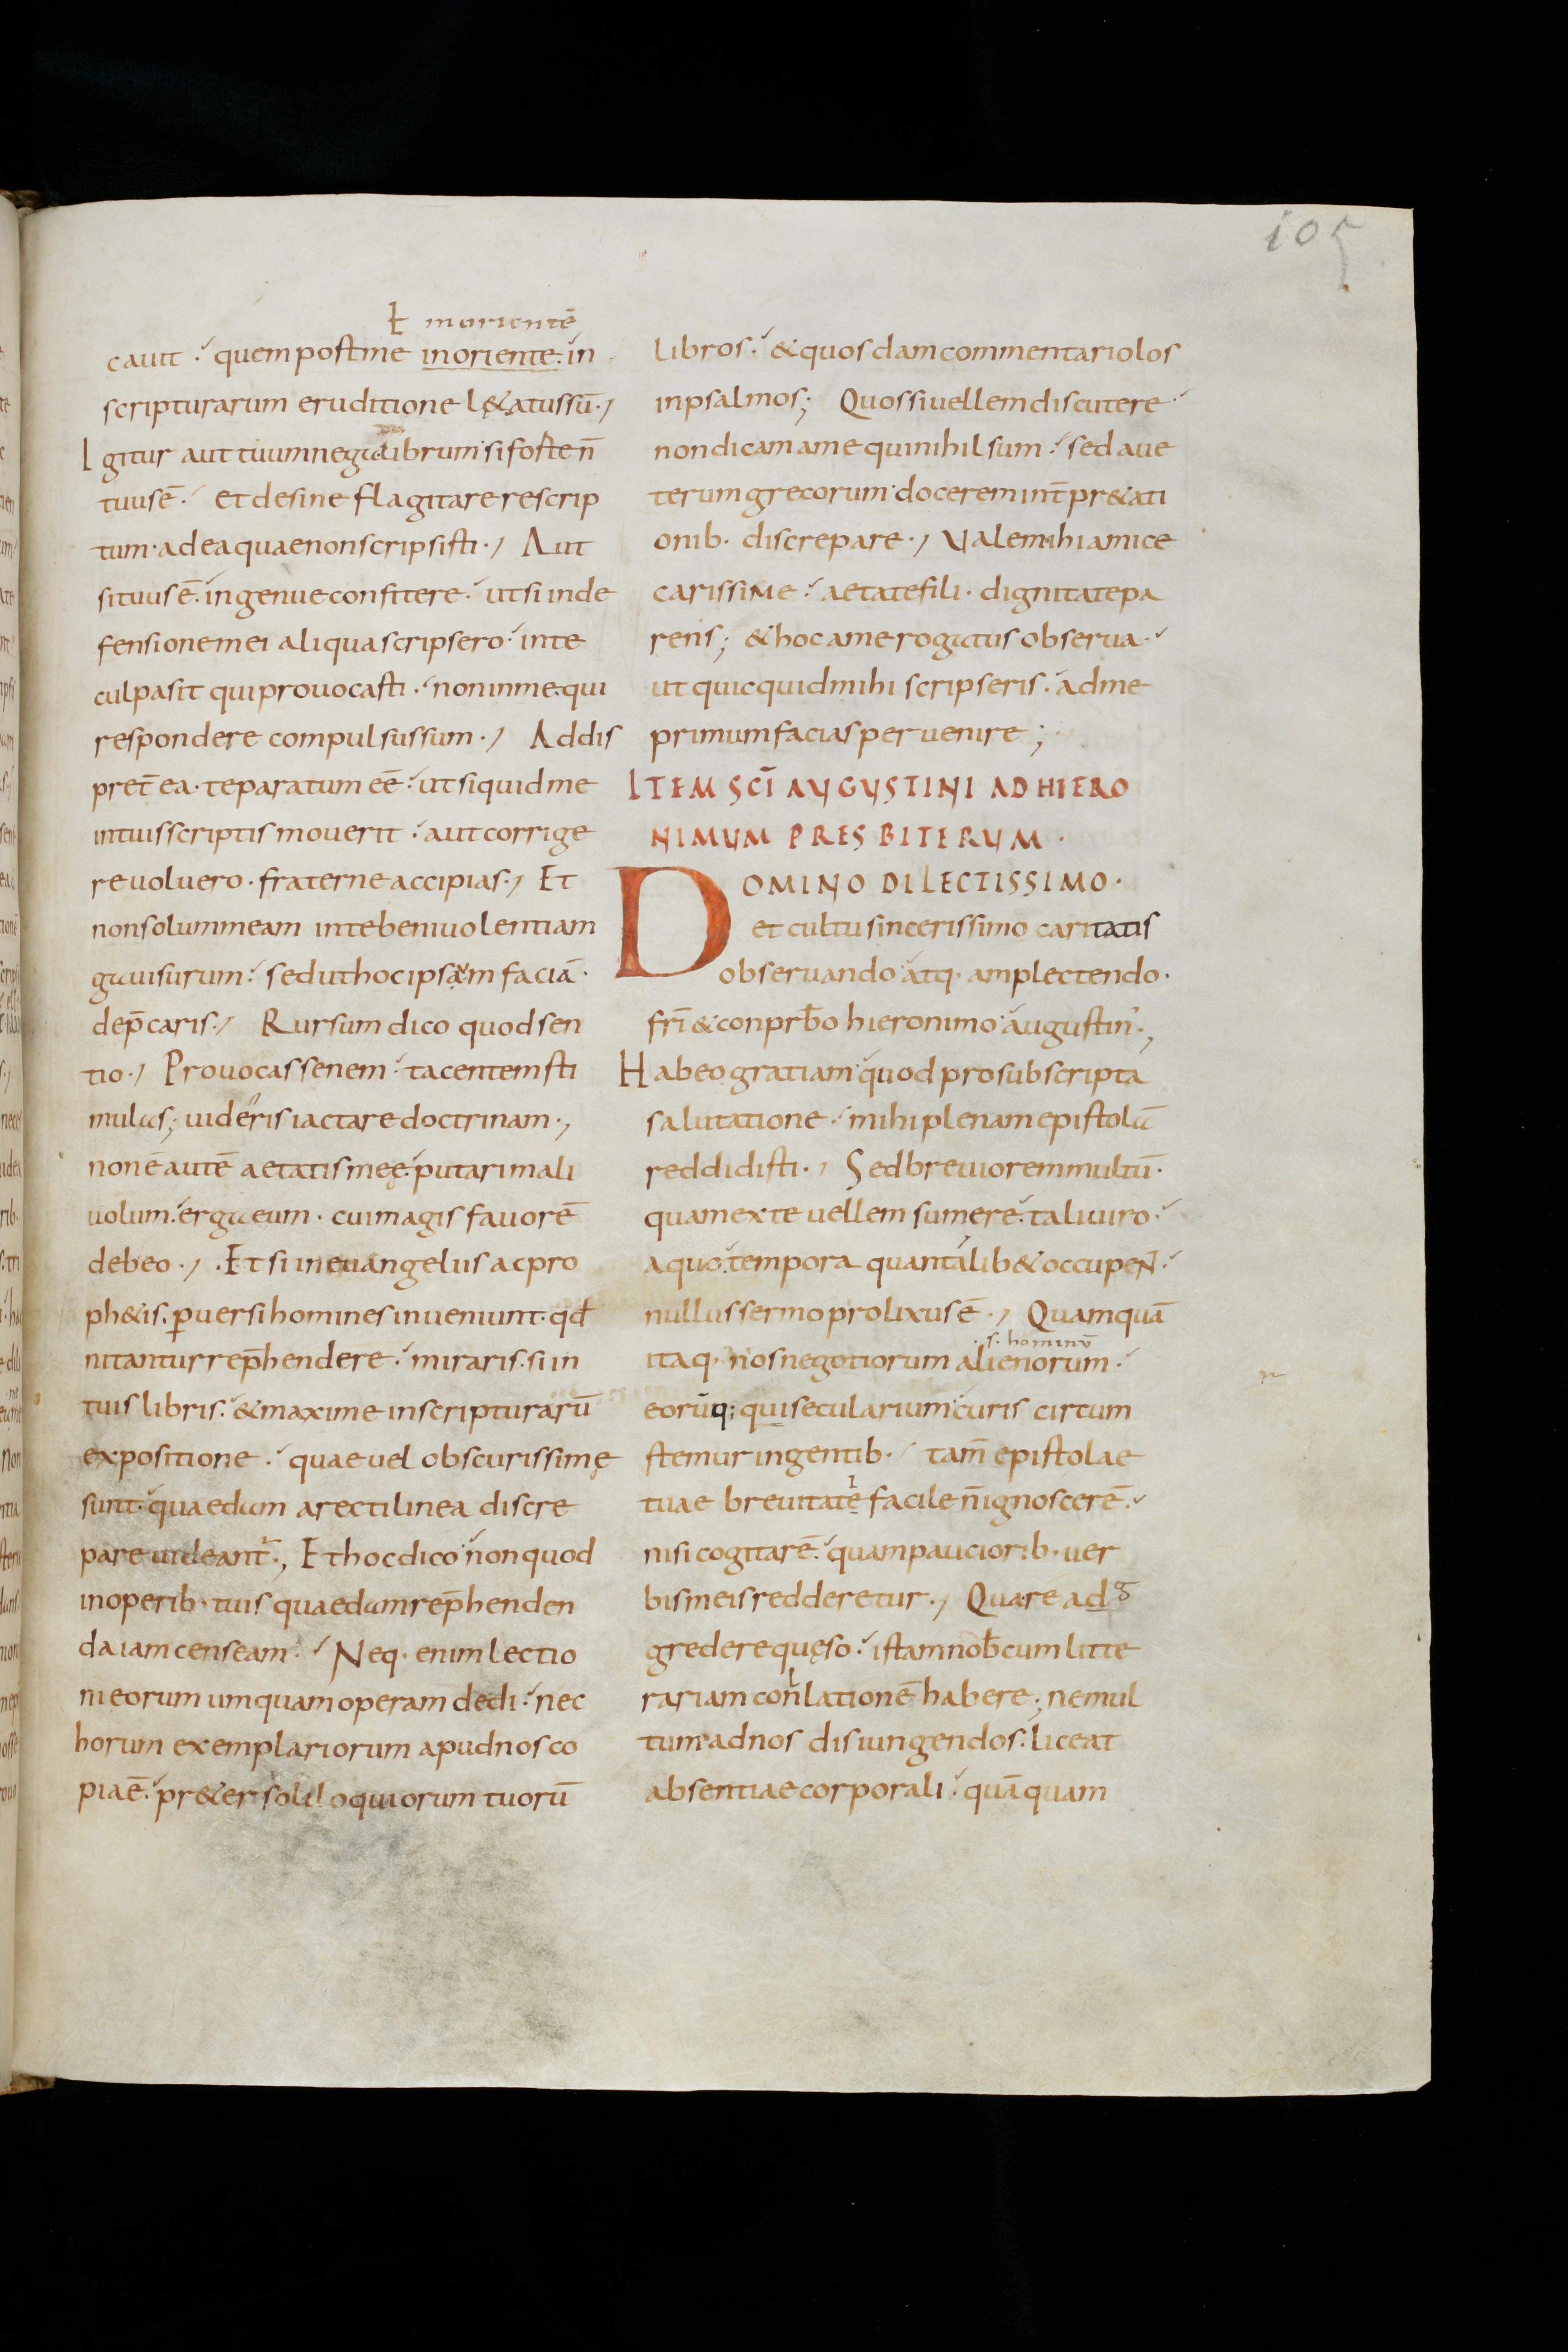 105
ƚ morientē
cauit quem post me inoriente in
scripturarum eruditione lę&atus sū
Igitur aut tuum nega librum si forte n̄
tuus ē. et desine flagitare rescrip
tum ad ea quae non scripsisti. Aut
si tuus ē ingenue confitere ut si in de
fensione mei aliqua scripsero in te
culpa sit qui prouocasti non in me qui
respondere compulsus sum. Addis
pret̄ea te paratum eē ut si quid me
in tuis scriptis mouerit aut corrige
re uoluero fraterne accipias. Et
non solum meam in te beniuolentiam
gauisurum sed ut hoc ipsum faciā
dep̄caris. Rursum dico quod sen
tio. Prouocas senem tacentem sti
mulas; uideris iactare doctrinam.
non ē autē aetatis meę putari mali
uolum erga eum cui magis fauorē
debeo. Et si in euangeliis ac pro
ph&is ꝑuersi homines inueniunt qđ
nitantur rep̄hendere miraris si in
tuis libris & maxime in scripturarū
expositione quae uel obscurissimę
sunt quaedam a recti linea discre
pare uideant̄. Et hoc dico non quod
in operib· tuis quaedam rep̄henden
da iam censeam. Neq· enim lectio
ni eorum umquam operam dedi nec
horum exemplariorum apud nos co
pia ē pr&er soliloquiorum tuorū
libros & quosdam commentariolos
in psalmos; Quos si uellem discutere
non dicam a me qui nihil sum sed a ue
terum grecorum docerem int̄pr&ati
onib· discrepare. Vale mihi amice
carissime aetate fili dignitate pa
rens; & hoc a me rogatus obserua
ut quicquid mihi scripseris ad me
primum facias peruenire;
ITEM SCĪ AUGUSTINI AD HIERO
NIMUM PRESBITERUM·
DOMINO DILECTISSIMO·
et cultu sincerissimo caritatis
obseruando atq· amplectendo·
frī & conprb̄o hieronimo augustin'
Habeo gratiam quod pro subscripta
salutatione mihi plenam epistolā
reddidisti. Sed breuiorem multū
quam ex te uellem sumere tali uiro
a quo tempora quantalib& occupen̄t
nullus sermo prolixus ē. Quamquā
s. hominū
itaq· nos negotiorum alienorum
eorūq; qui secularium curis circum
stemur ingentib· tam̄ epistolae
tuae breuitate facile n̄ ignoscerē
nisi cogitarē quam pauciorib· uer
bis meis redderetur. Quare adg
gredere quęso istam nob̄cum litte
rariam conlationē habere; ne mul
tum ad nos disiungendos liceat
absentiae corporali quāquam